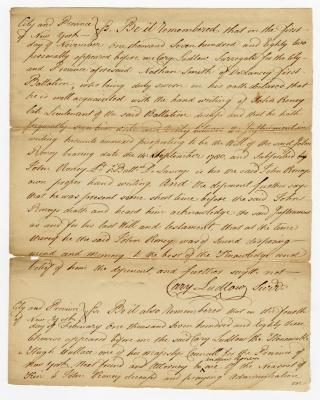 City and Province
of New York
ss. Be it Remembered that on the first
day of November one thousand seven hundred and eighty two
personally appeared before me Cary Ludlow Surrogate for the City
and Province aforesaid Nathan Smith of Delancey first
Battalion, who being duly sworn on his oath declared that
he is well acquainted with the hand writing of John Roney
late Lieutenant of the said Battalion deceased and that he hath
frequently seen him write and that the Instrument in
writing hereunto annexed purporting to be the Will of the said John
Roney bearing date the September 1780, and subscribed by
John Roney Lt Battn D Lancey is his the said John Roneys
own proper hand writing. And the deponent further says
that he was present some short time before the said John
Roneys death and heard him acknowledge the said Instrument
as and for his last Will and testament, that at the time
thereof he the said John Roney was of sound disposing
mind and memory to the best of the knowledge and
belief of him the deponent and further saith not
Cary Ludlow Surr
City and Province
of New York
ss. Be it also Remembered that on the fourth
day of February one thousand seven hundred and eighty three
appeared before me the said Cary Ludlow the Honorable
Hugh Wallace one of his majestys Council for the Province of
New York next friend and Attorney to one of the nearest of
Kin to John Roney deceased and praying Administration